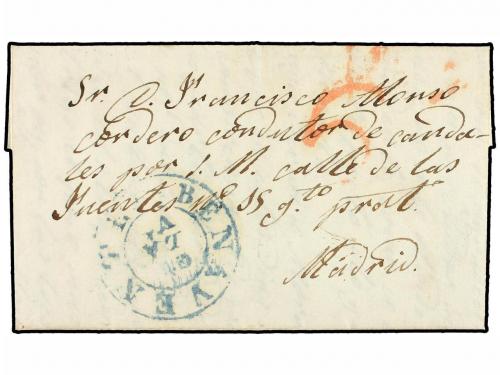 Sr. D. Francisco Alonso
cordero condutor de cauda-
les por S. M. calle de las
Fuentes nº 15 q.to pral.
Madrid.
BENAVENTE